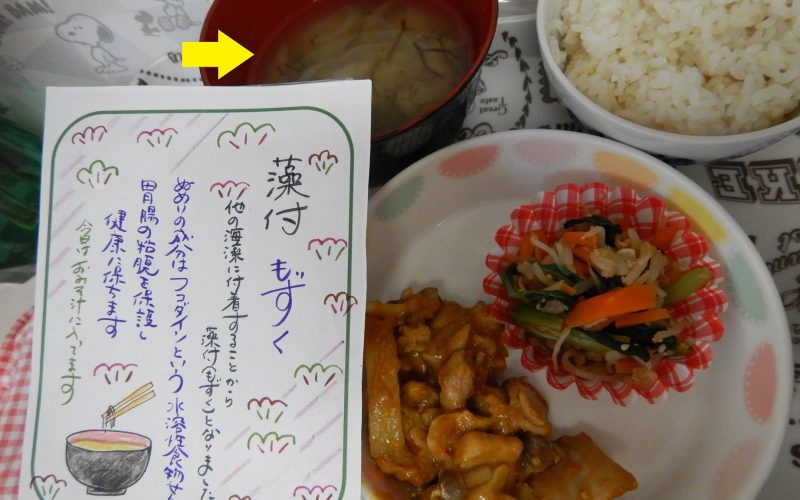 藻付 もずく
他の海藻に付着することから
藻付(もずく)となりました
ぬめりの成分はフコダインという水溶性食物
胃腸の粘膜を保護し
健康に保ちます
今日はおみそ汁に入ってます
Great
Taste